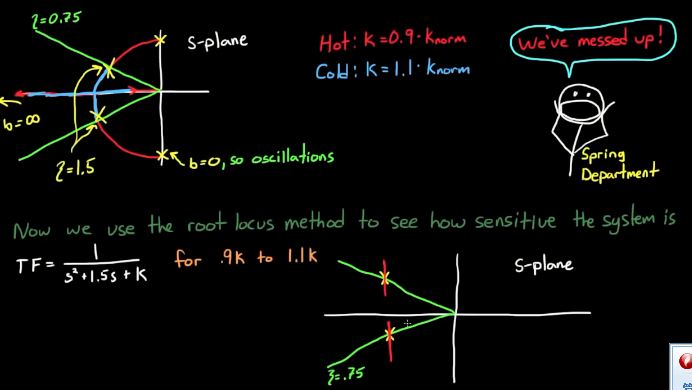 ζ=0.75
S-plane
Hot: K=0.9·Knorm
Cold: K=1.1·Knorm
We've messed up!
b=∞
ζ=1.5
b=0, so oscillations
Spring
Department
Now we use the root locus method to see how sensitive the system is
TF= 1 / s²+1.5s+K for .9K to 1.1K
S-plane
ζ=.75